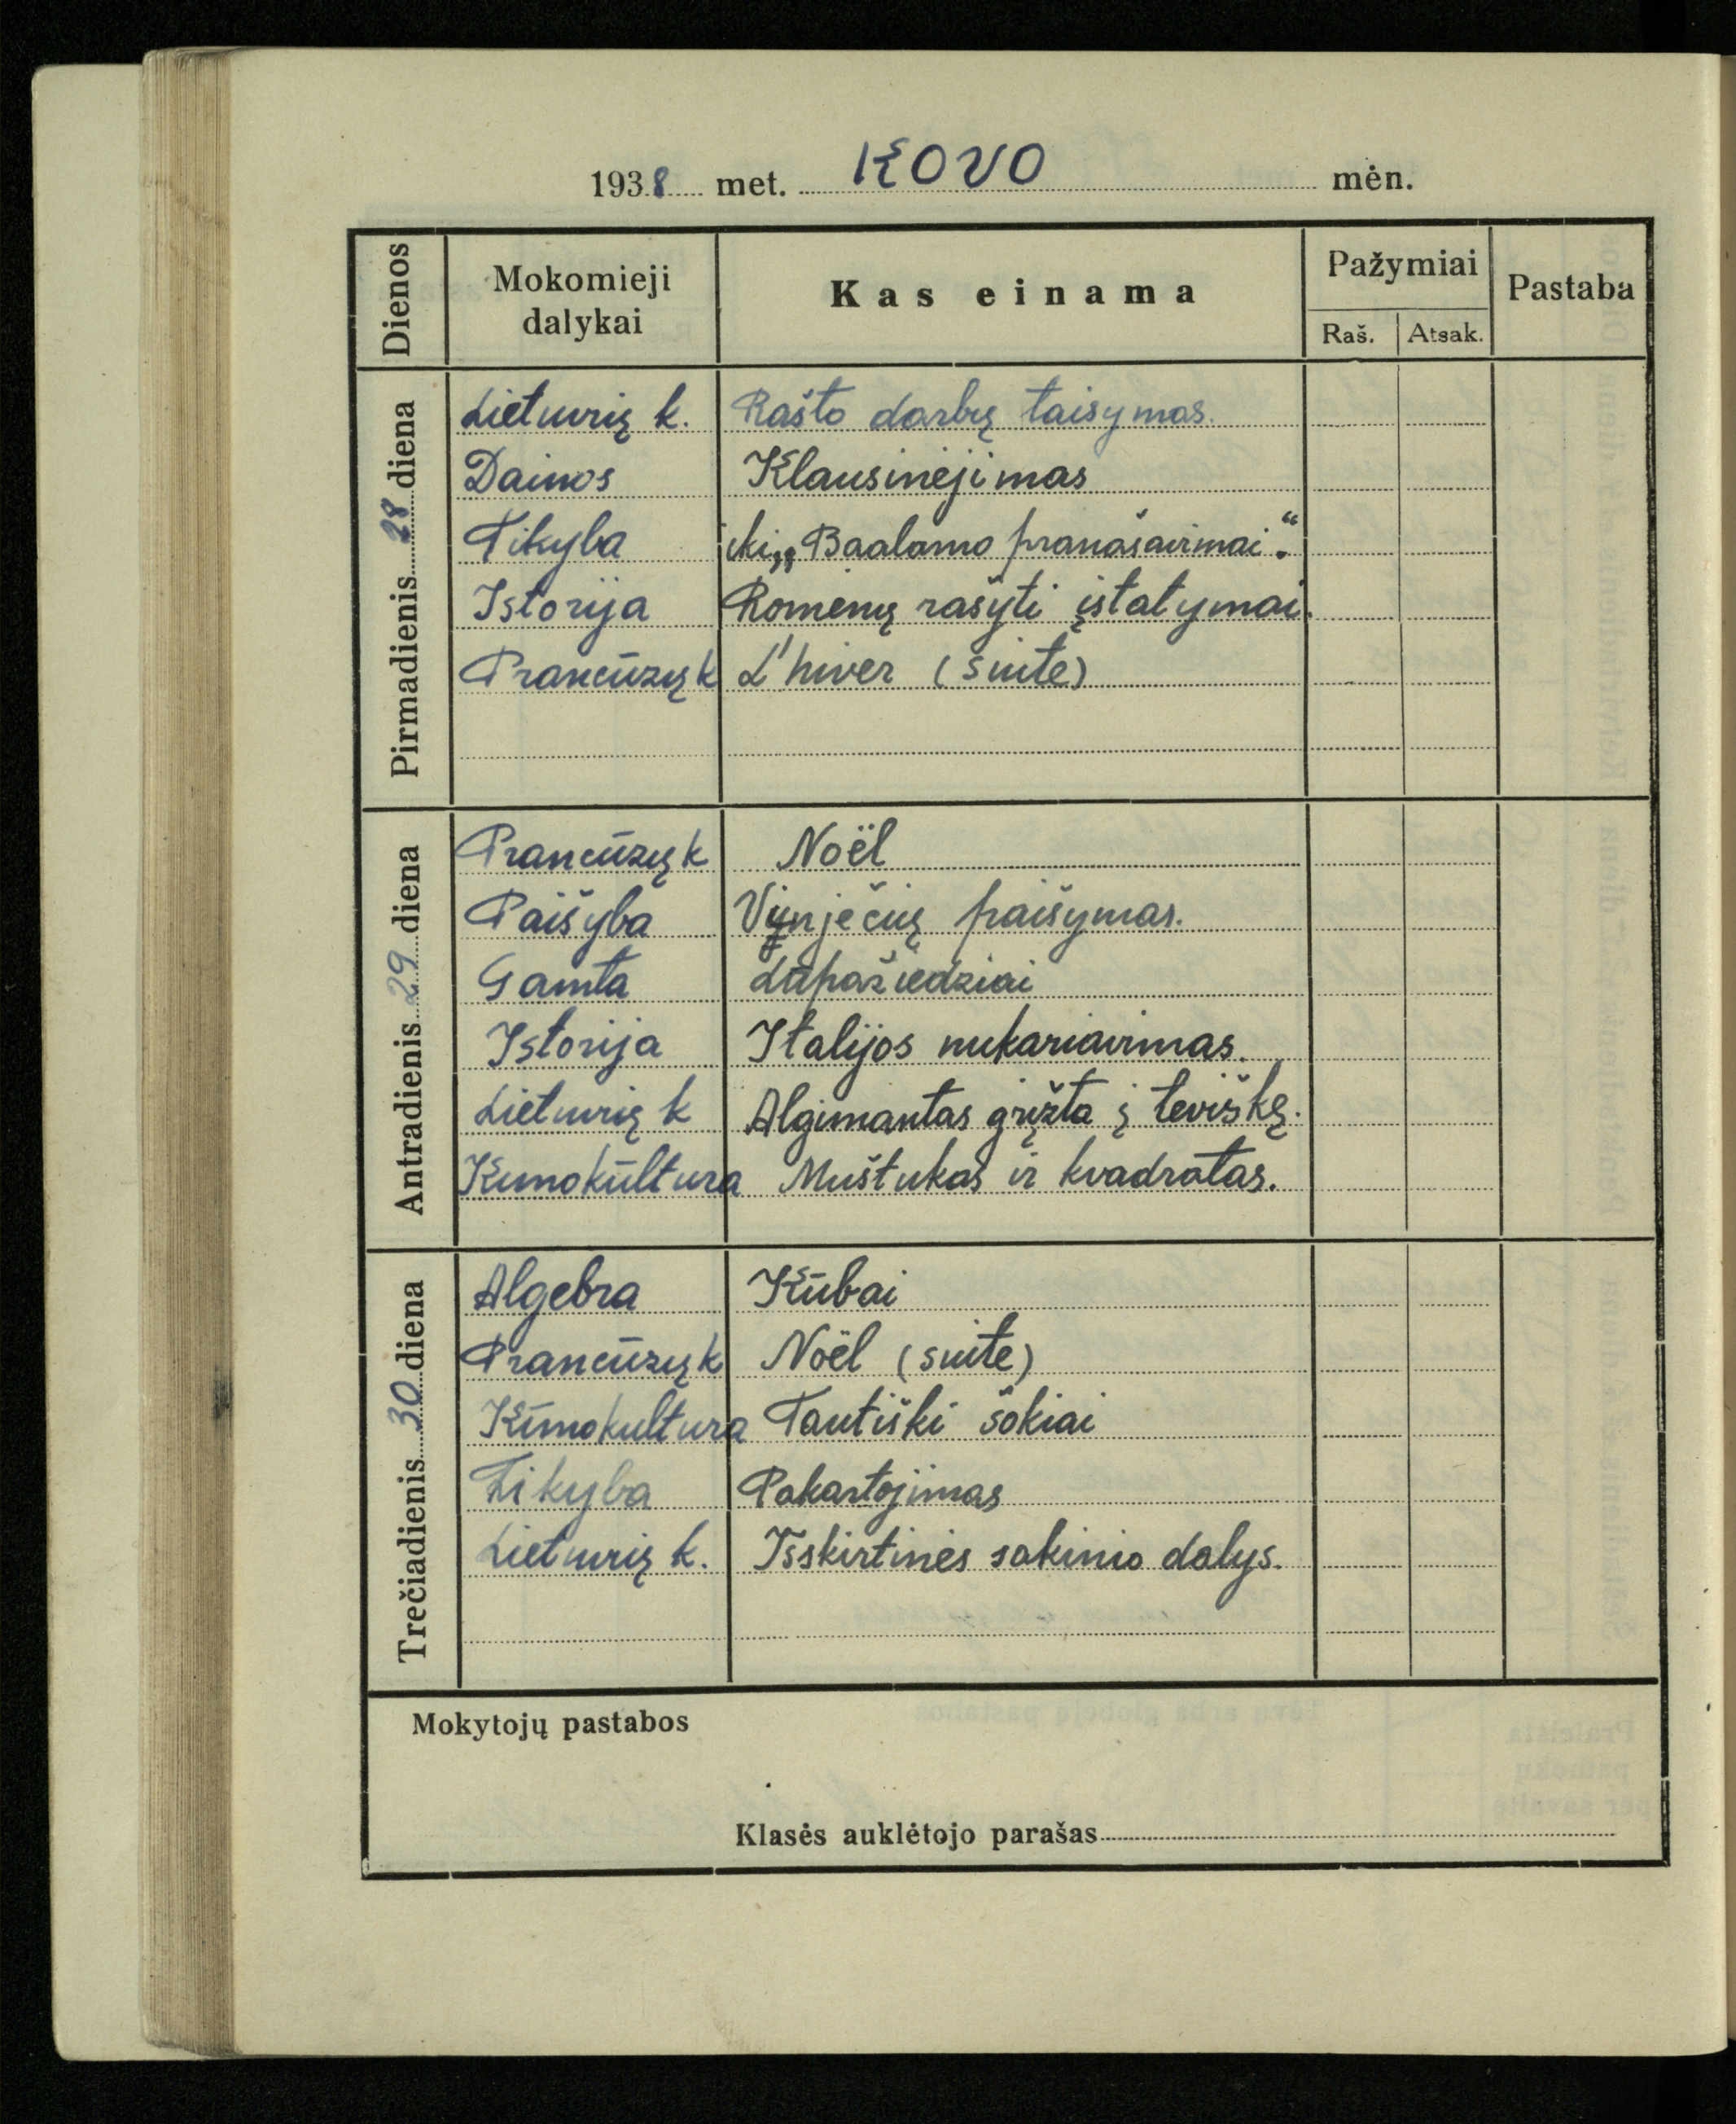 1938 met. KOVO mėn.
Dienos Mokomieji dalykai Kas einama Pažymiai Raš. Atsak. Pastaba
Pirmadienis 28 diena
Lietuvių k. Rašto darbų taisymas.
Dainos Klausinėjimas
Tikyba iki „Baalamo pranašavimai“.
Istorija Romėnų rašyti įstatymai.
Prancūzų k L'hiver (suite)
Antradienis 29 diena
Prancūzų k Noël
Paišyba Vinječių paišymas.
Gamta Lūpažiedžiai
Istorija Italijos nukariavimas.
Lietuvių k Algimantas grįžta į teviškę.
Kunokūltura Muštukas ir kvadratas.
Trečiadienis 30 diena
Algebra Kūbai
Prancūzų k Noël (suite)
Kūnokultura Tautiški šokiai
Tikyba Pakartojimas
Lietuvių k. Isskirtinės sakinio dalys.
Mokytojų pastabos
Klasės auklėtojo parašas